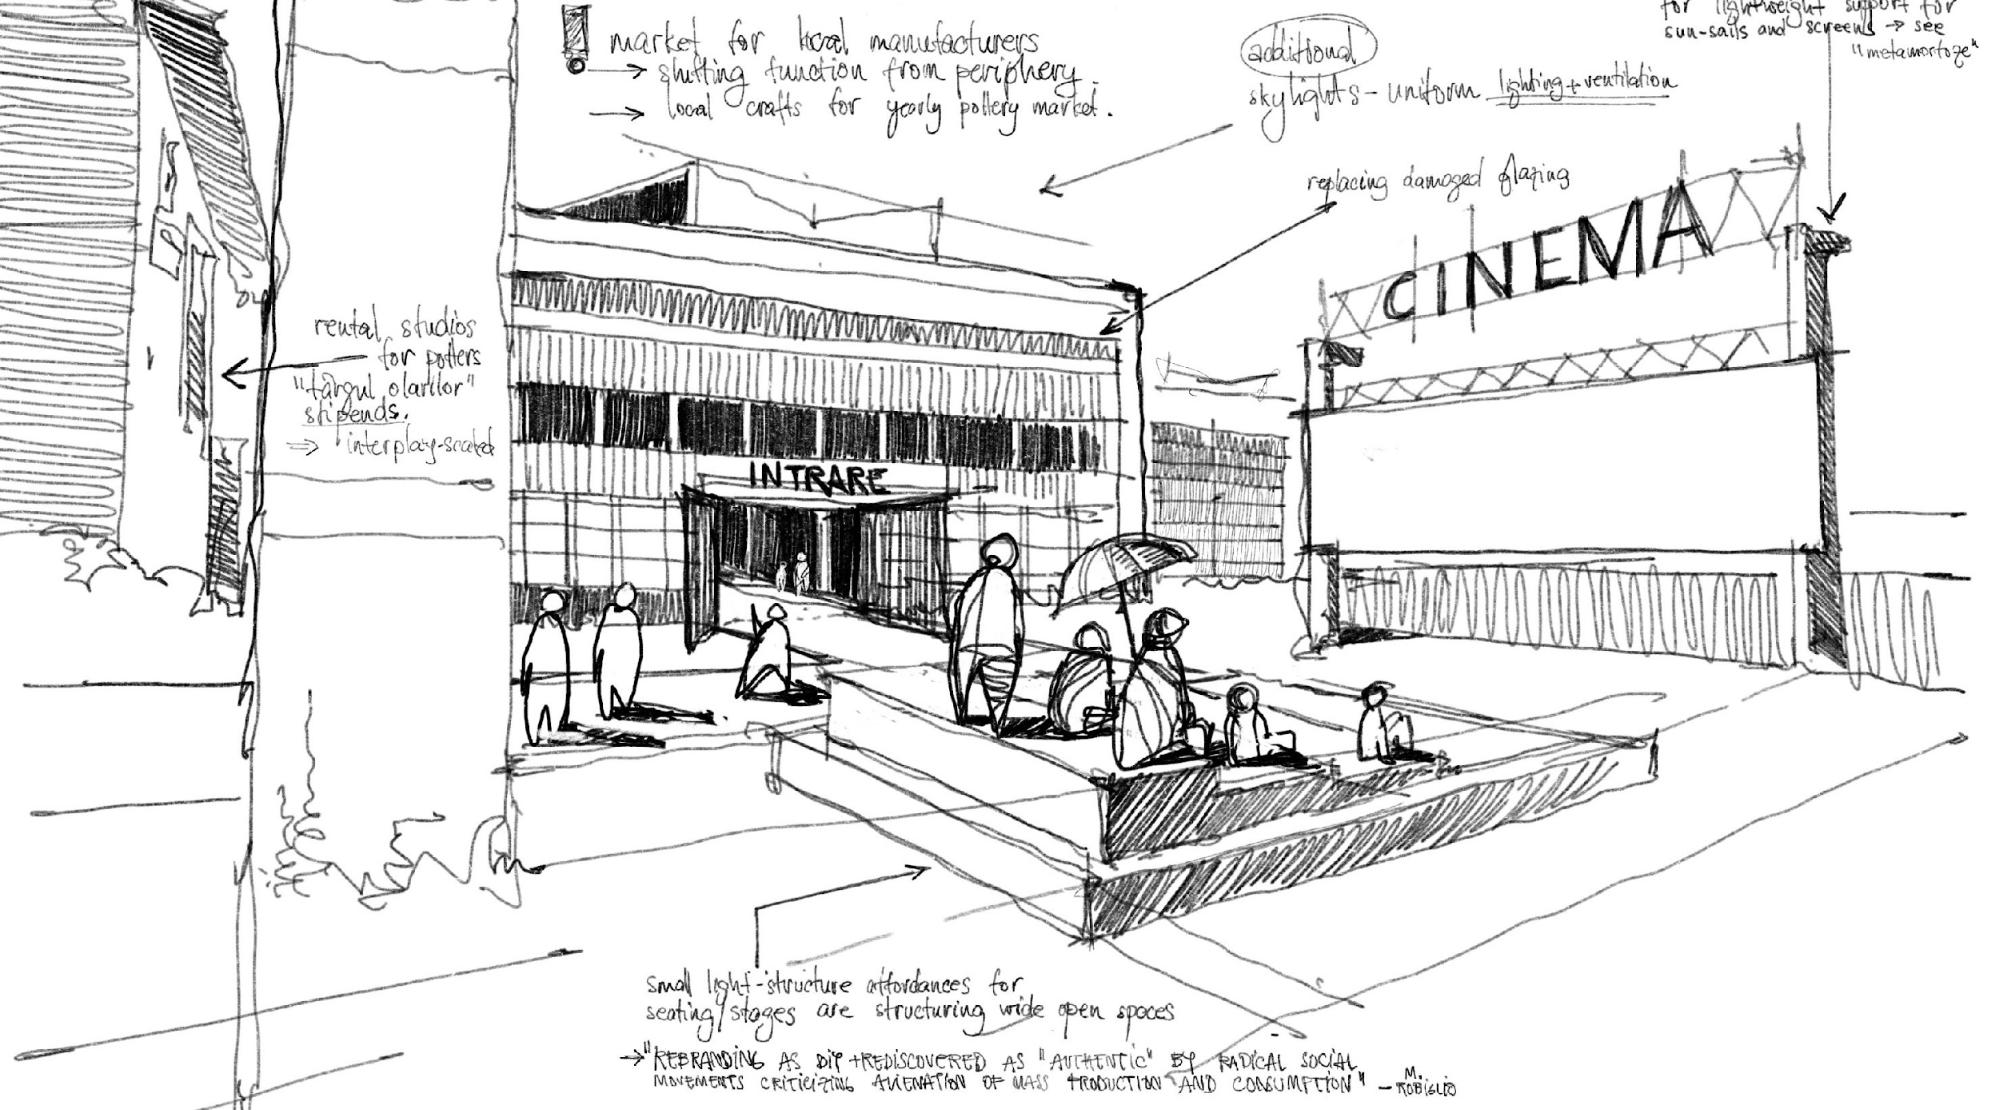 market for local manufacturers
→ shifting function from periphery.
→ local crafts for yearly pottery market.
additional
skylights - uniform lighting + ventilation
for lightweight support for
sun-sails and screens → see
"metamorfoze"
replacing damaged glazing
CINEMA
rental studios
for potters
"târgul olarilor"
stipends.
⇒ interplay-scaled
INTRARE
small light-structure affordances for
seating/stages are structuring wide open spaces
→ "REBRANDING AS DIY + REDISCOVERED AS "AUTHENTIC" BY RADICAL SOCIAL
MOVEMENTS CRITICIZING ALIENATION OF MASS PRODUCTION AND CONSUMPTION" - M. ROBIGLIO